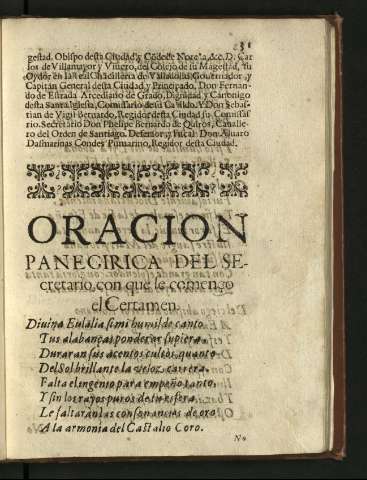 31
gestad. Obispo desta Ciudad, y Cõde de Noreña, &c. D. Car
los de Villamayor y Vivero, del Colejo de su Magestad, su
Oydor en la Real Chãcilleria de Valladolid, Governador, y
Capitán General desta Ciudad, y Principado. Don Fernan-
do de Estrada Arcediano de Grado, Dignidad y Canonigo
desta Santa Iglesia, Comissario de su Cavildo. Y Don Sebas-
tian de Vigil Bernardo, Regidor desta Ciudad su Comissa-
rio. Secretario Don Phelipe Bernardo de Quiros, Cavalle-
ro del Orden de Santiago. Defensor, y Fiscal: Don Alvaro
Dasmarinas Conde y Pumarino, Regidor desta Ciudad.
ORACION
PANEGIRICA DEL SE-
cretario, con que le començo
el Certamen.
Divina Eulalia si mi humilde canto
Tus alabanças ponderar supiera,
Duraran sus acentos cultos, quanto
Del Sol brillante la veloz carrera.
Falta el ingenio para empeño tanto,
Y sin los rayos puros de tu esfera
Le faltaràn las consonancias de oro
A la armonia del Castalio Coro.
No